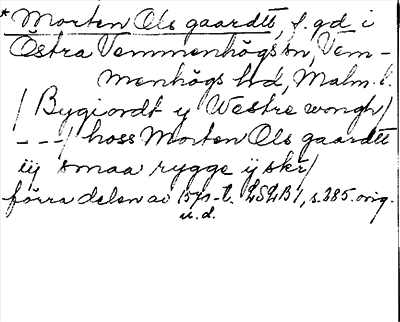 * Morten Ols gaardtt, f.gd i
Östra Vemmenhögs sn, Vem-
menhögs hd, Malm. l.
/ Bygiordt y Westre wongh/
---/ hoss Morten Ols gaardtt
iij smaa rygge ij skr/
förra delen av 1570-t. LSLB1, s.285. orig.
u.d.